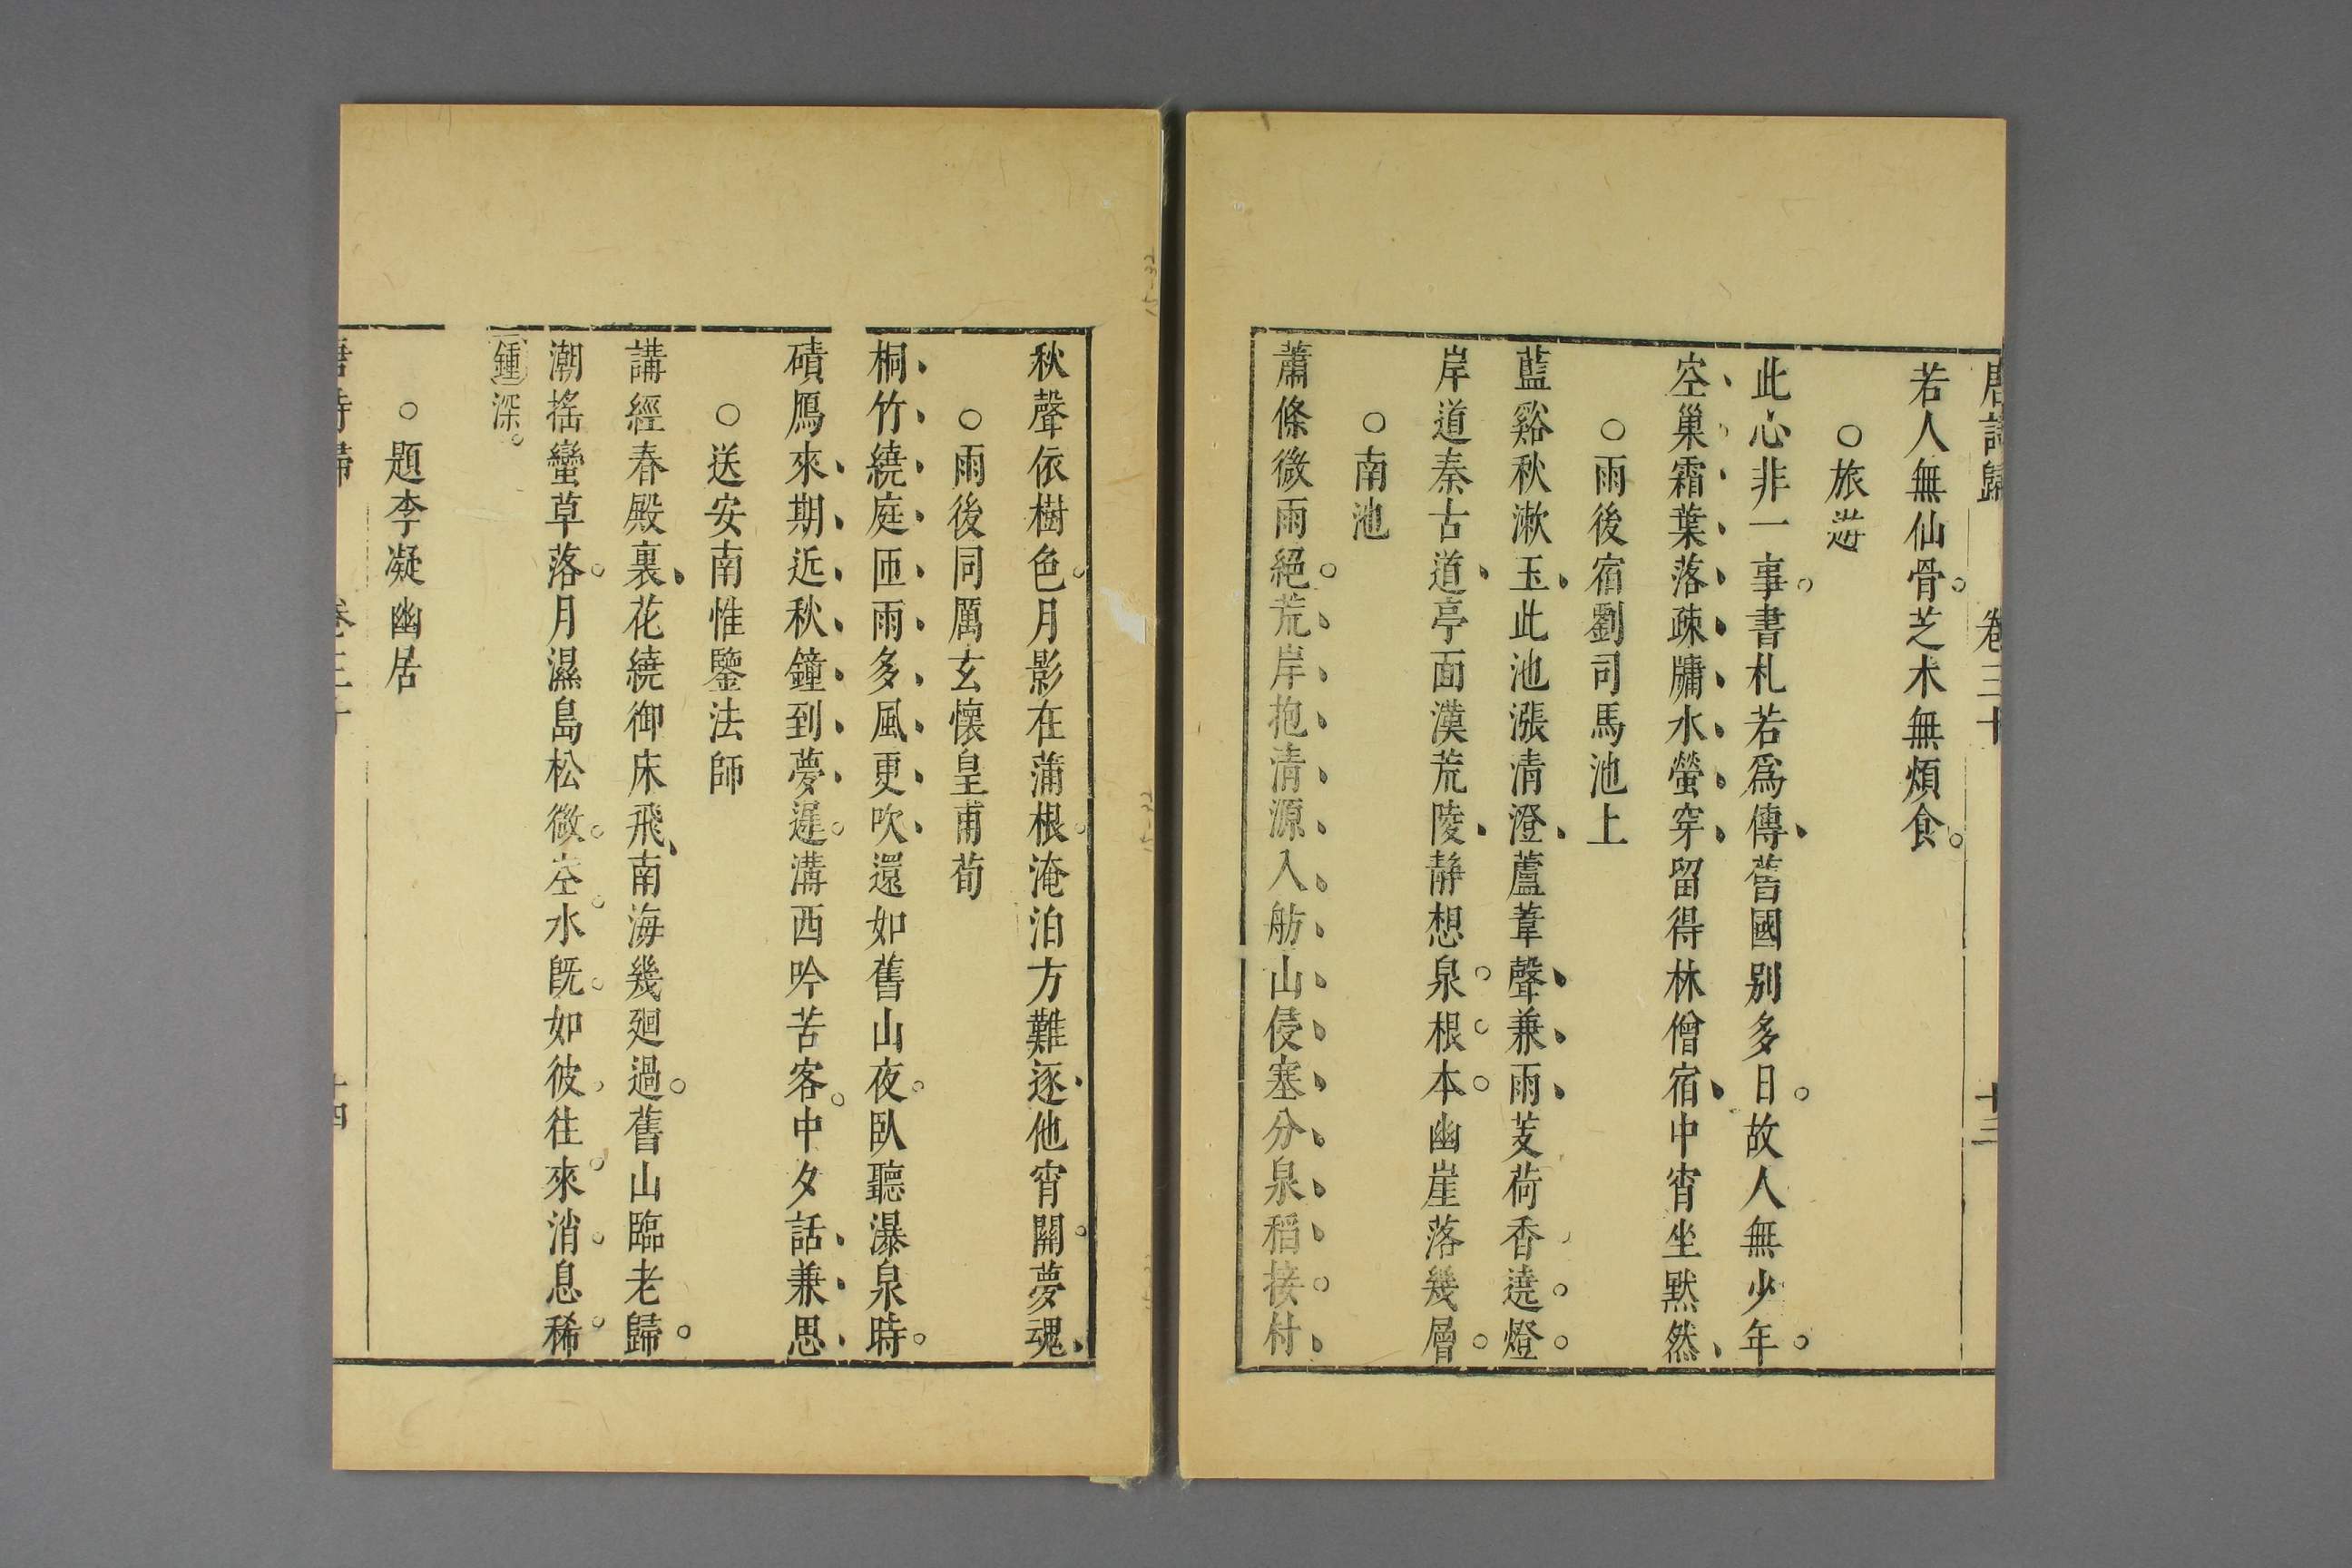 唐詩歸 卷三十 十三
若人無仙骨。芝朮無煩食。
○旅遊
此心非一事。書札若爲傳、舊國別多日。故人無少年。
空巢霜葉落疎牗水螢穿留得林僧宿中宵坐默然
○雨後宿劉司馬池上
藍谿秋漱玉、此池漲清澄、蘆葦聲兼雨、芰荷香遶燈。
岸道秦古道、亭面漢荒陵、靜想泉。根。本。幽崖落幾層。
○南池
蕭條微雨絕。荒岸抱清源入舫山侵塞分泉稻接村
秋聲依樹色。月影在蒲根。淹泊方難逐、他宵關。夢魂、
○雨後同厲玄懷皇甫荀
桐竹繞庭匝雨多風更吹、還如舊山夜。臥聽瀑泉時。
磧鴈來期近秋鐘到夢遲。溝西吟苦客。中夕話兼思
○送安南惟鑒法師
講經春殿裏、花繞御床飛、南海幾廻過。舊山臨老歸。
潮搖蠻草落。月濕島松微。空。水旣。如彼往來。消。息稀。
鍾深。
○題李凝幽居
唐詩歸 卷三十 十四